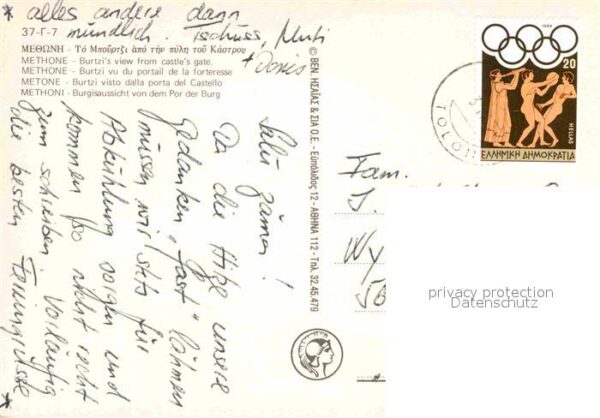 * alles andere dann
mündlich. Tschüss, Muti
+ Doris
37-Γ-7
ΜΕΘΩΝΗ - Τό Μπούρτζι ἀπό τήν πύλη τοῦ Κάστρου
METHONE - Burtzi's view from castle's gate.
METHONE - Burtzi vu du portail de la forteresse
METONE - Burtzi visto dalla porta del Castello
METHONI - Burgisaussicht von dem Por der Burg
Salü zämen!
Da die Hitze unsere
Gedanken "fast" lähmen
müssen wir stets für
Abkühlung sorgen und
kommen so nicht recht
zum schreiben. Vorläufig
die besten Feriengrüsse
*
© ΒΕΝ. ΗΣΑΪΑΣ & ΣΙΑ Ο.Ε. - Εὐπόλιδος 12 - ΑΘΗΝΑ 112 - Τηλ. 32.45.479
1984
20
HELLAS
ΕΛΛΗΝΙΚΗ ΔΗΜΟΚΡΑΤΙΑ
TOLON
Fam.
J.
Wy
50
privacy protection
Datenschutz